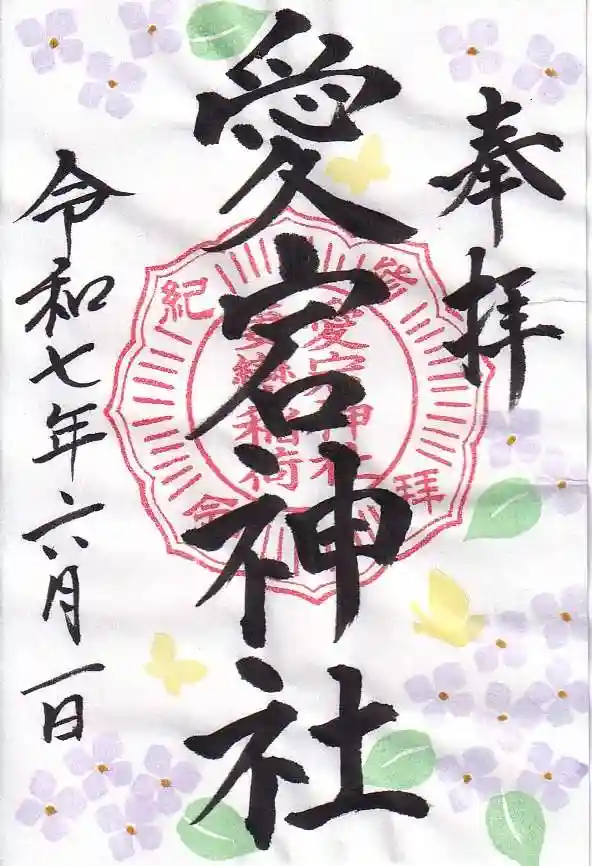 奉拝
愛宕神社
愛宕神社
愛染稲荷
参拝
紀念
令和七年六月一日